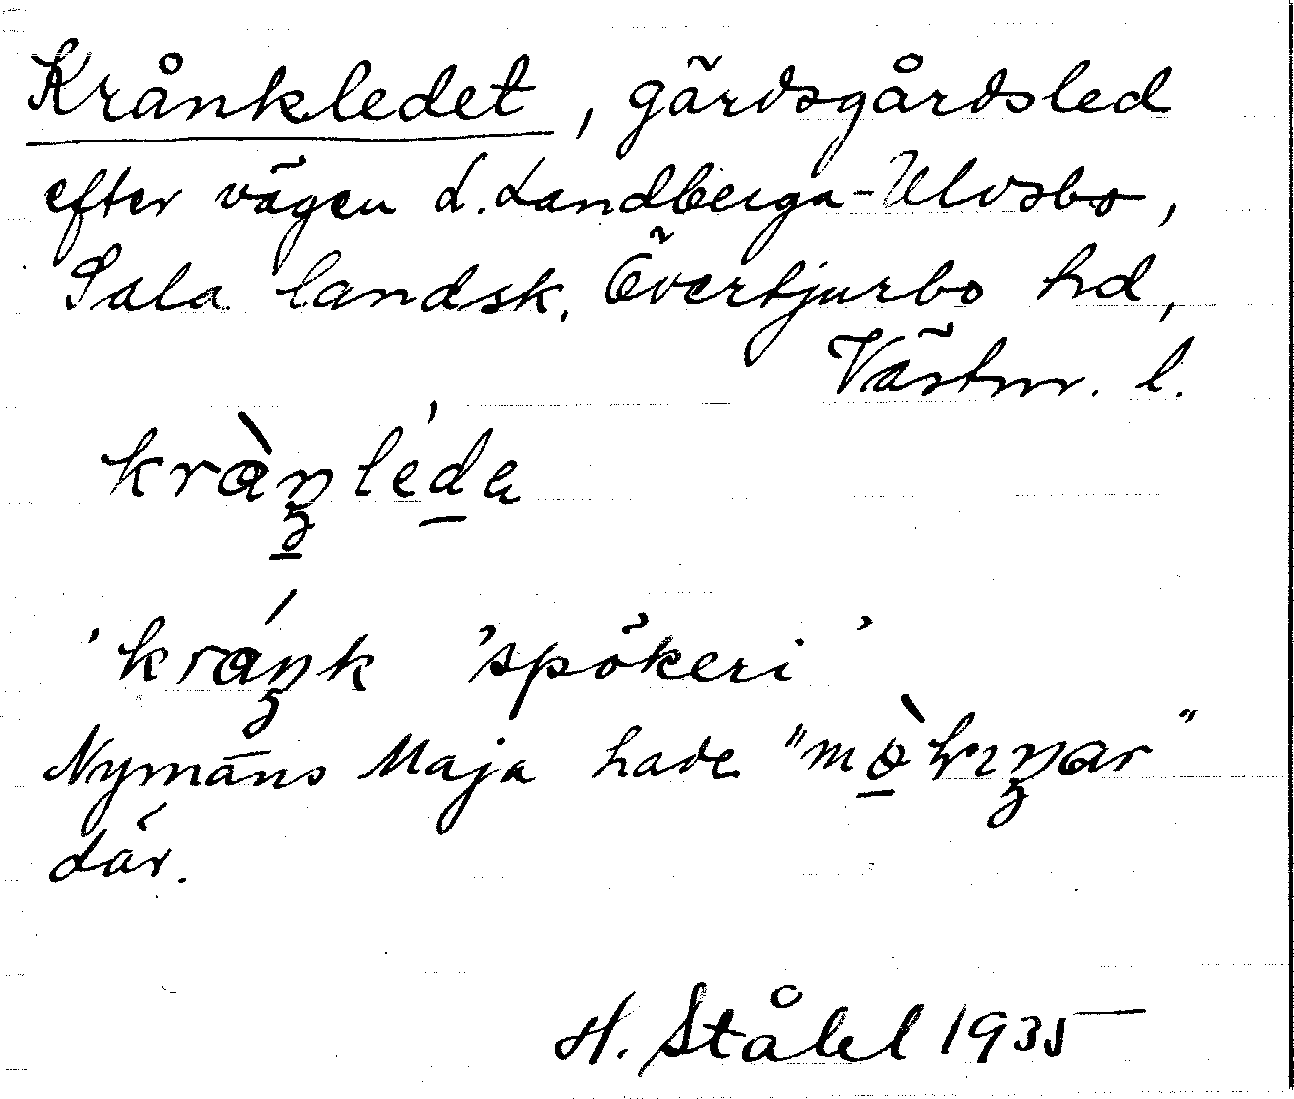 Krånkledet, gärdsgårdsled
efter vägen L. Landberga-Ulvsbo,
Sala landsk. Övertjurbo hd,
Västm. l.
kràŋléda
'kráŋk 'spökeri'
Nymans Maja hade "mòkıŋar"
där.
H. Ståhl 1935